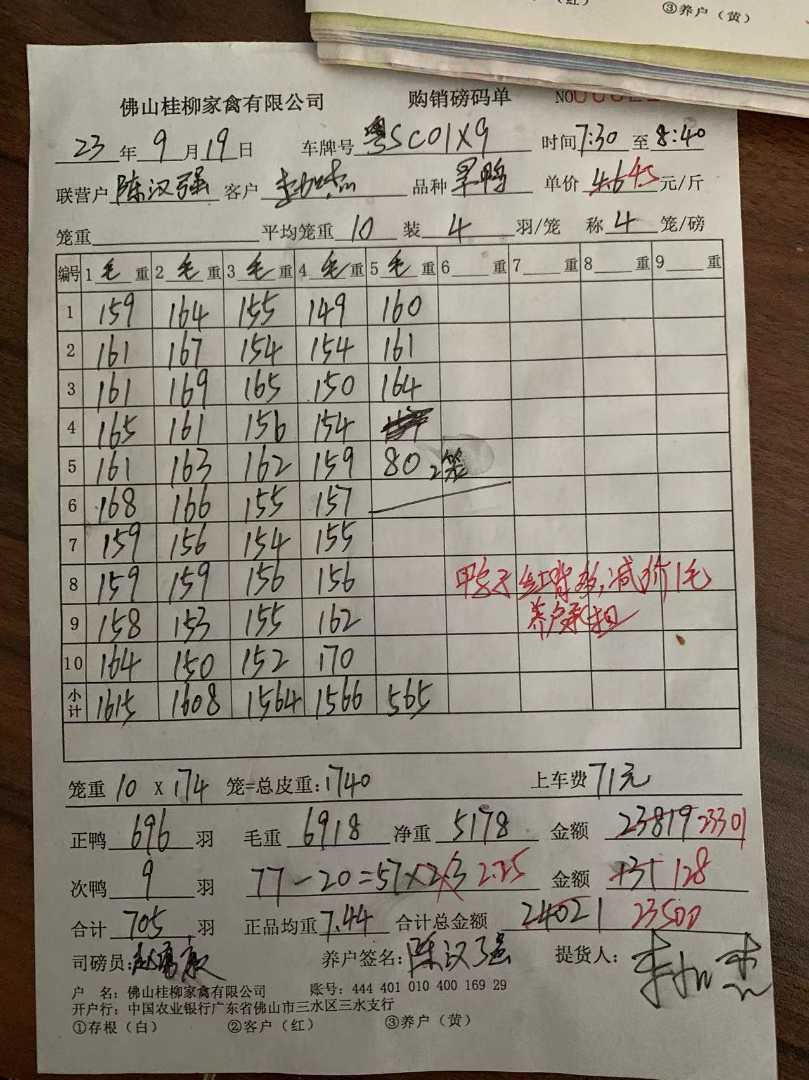 ③养户（黄）
佛山桂柳家禽有限公司 购销磅码单 NO
23年9月19日 车牌号 粤SC01X9 时间7:30至8:40
联营户 陈汉强 客户 品种 单价 4.6 4.5 元/斤
笼重 平均笼重 10 装 4 羽/笼 称 4 笼/磅
编号 1 毛 重 2 毛 重 3 毛 重 4 毛 重 5 毛 重 6 重 7 重 8 重 9 重
1 159 164 155 149 160
2 161 167 154 154 161
3 161 169 165 150 164
4 165 161 156 154
5 161 163 162 159 80 2笼
6 168 166 155 157
7 159 156 154 155
8 159 159 156 156 减价1毛
9 158 153 155 162 养户承担
10 164 150 152 170
小计 1615 1608 1564 1566 565
笼重 10 X 174 笼=总皮重:1740 上车费 71元
正鸭 696 羽 毛重 6918 净重 5178 金额 23819 23301
次鸭 9 羽 77-20=57×2.3 2.25 金额 131 128
合计 705 羽 正品均重 7.44 合计总金额 24021 23500
司磅员: 养户签名: 陈汉强 提货人:
户 名：佛山桂柳家禽有限公司 账号：444 401 010 400 169 29
开户行：中国农业银行广东省佛山市三水区三水支行
①存根（白） ②客户（红） ③养户（黄）